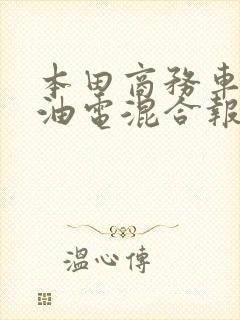 本田商務車
油電混合報
溫心傳